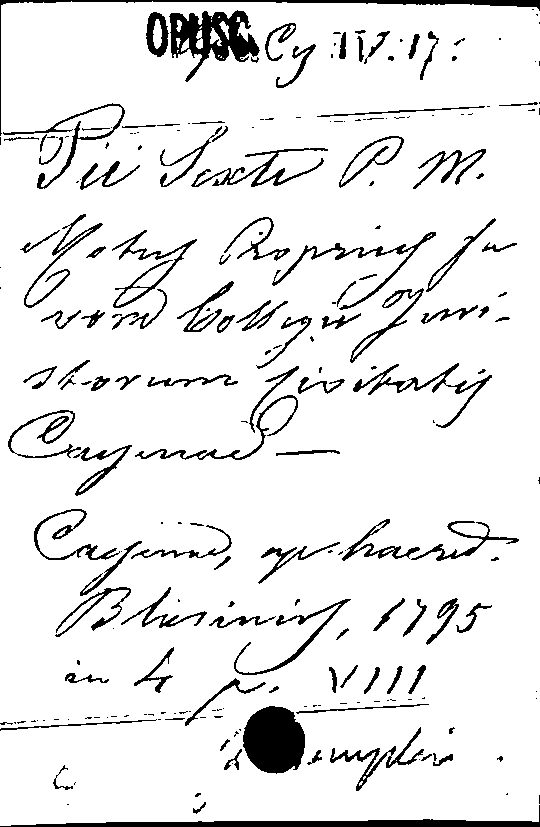 OPUSC. Cy IV. 17.
Pii Sexti P. M.
Motus Proprius fa
vore Collegii Juri-
storum Civitatis
Caesenae —
Caesenae, ap. haered.
Blasinios, 1795
in 4 p. VIII